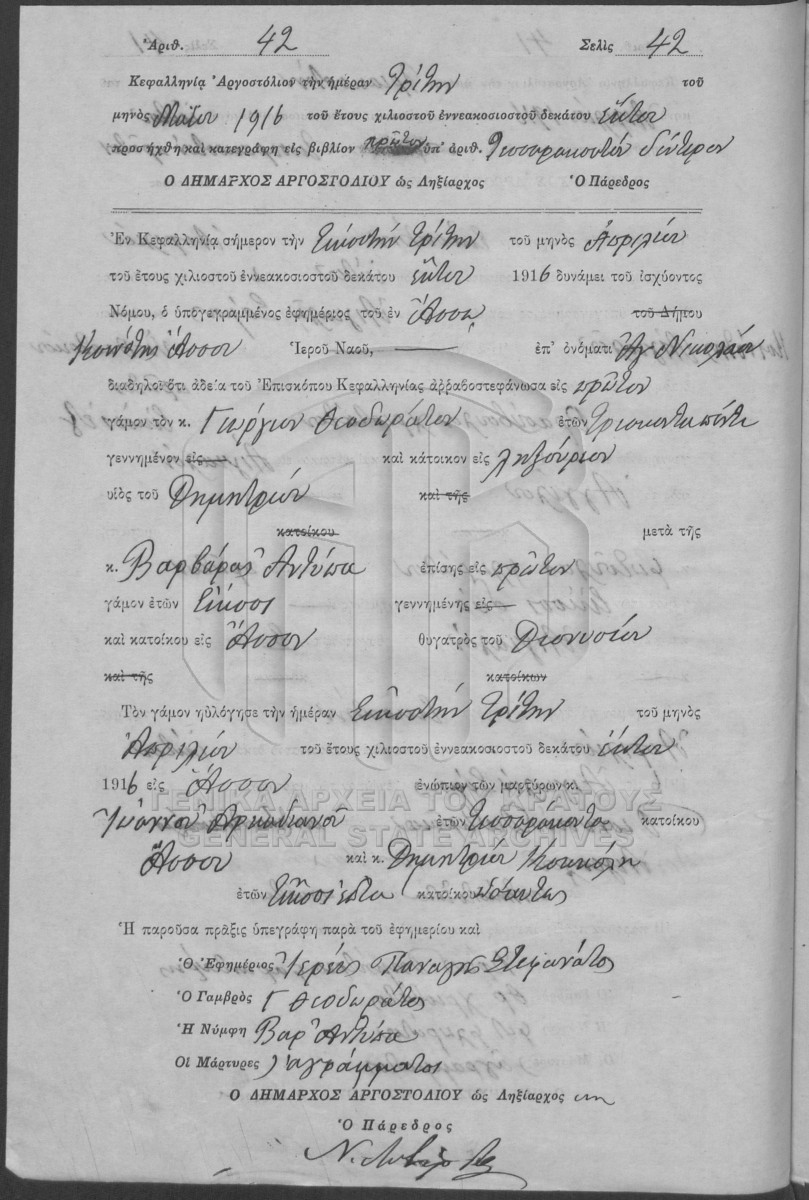 Ἀριθ. 42 Σελὶς 42
Κεφαλληνίᾳ Ἀργοστόλιον τὴν ἡμέραν Τρίτην τοῦ
μηνὸς Μαΐου 1916 τοῦ ἔτους χιλιοστοῦ ἐννεακοσιοστοῦ δεκάτου ἕκτου
προσήχθη καὶ κατεγράφη εἰς βιβλίον πρῶτον ὑπ' ἀριθ. Τεσσαρακοστὸν δεύτερον
Ὁ ΔΗΜΑΡΧΟΣ ΑΡΓΟΣΤΟΛΙΟΥ ὡς Ληξίαρχος Ὁ Πάρεδρος
Ἐν Κεφαλληνίᾳ σήμερον τὴν Εἰκοστὴν Τρίτην τοῦ μηνὸς Ἀπριλίου
τοῦ ἔτους χιλιοστοῦ ἐννεακοσιοστοῦ δεκάτου ἕκτου 1916 δυνάμει τοῦ ἰσχύοντος
Νόμου, ὁ ὑπογεγραμμένος ἐφημέριος τοῦ ἐν Ἄσσῳ τοῦ Δήμου
Κοινότης Ἄσσου Ἱεροῦ Ναοῦ, ἐπ' ὀνόματι Ἁγ. Νικολάου
διαδηλοῖ ὅτι ἀδείᾳ τοῦ Ἐπισκόπου Κεφαλληνίας ἀρραβοστεφάνωσα εἰς πρῶτον
γάμον τὸν κ. Γεώργιον Θεοδωράτον ἐτῶν Τριακονταπέντε
γεννημένον εἰς καὶ κάτοικον εἰς Ληξούριον
υἱὸς τοῦ Δημητρίου καὶ τῆς
κατοίκου μετὰ τῆς
κ. Βαρβάρας Ἀντύπα ἐπίσης εἰς πρῶτον
γάμον ἐτῶν Εἴκοσι γεννημένης εἰς
καὶ κατοίκου εἰς Ἄσσον θυγατρὸς τοῦ Διονυσίου
καὶ τῆς κατοίκων
Τὸν γάμον ηὐλόγησε τὴν ἡμέραν Εἰκοστὴν Τρίτην τοῦ μηνὸς
Ἀπριλίου τοῦ ἔτους χιλιοστοῦ ἐννεακοσιοστοῦ δεκάτου ἕκτου
1916 εἰς Ἄσσον ἐνώπιον τῶν μαρτύρων κ.
ΓΕΝΙΚΑ ΑΡΧΕΙΑ ΤΟΥ ΚΡΑΤΟΥΣ
Ἰωάννου Ἀρκαδιανοῦ ἐτῶν Τεσσαράκοντα κατοίκου
GENERAL STATE ARCHIVES
Ἄσσου καὶ κ. Δημητρίου Κοκκόλη
ἐτῶν Εἴκοσι ἑπτὰ κατοίκου ὡσαύτως
Ἡ παροῦσα πρᾶξις ὑπεγράφη παρὰ τοῦ ἐφημερίου καὶ
Ὁ Ἐφημέριος Ἱερεὺς Παναγῆς Στεφανάτος
Ὁ Γαμβρὸς Γ Θεοδωράτος
Ἡ Νύμφη Βαρ Ἀντύπα
Οἱ Μάρτυρες ἀγράμματοι
Ὁ ΔΗΜΑΡΧΟΣ ΑΡΓΟΣΤΟΛΙΟΥ ὡς Ληξίαρχος
Ὁ Πάρεδρος